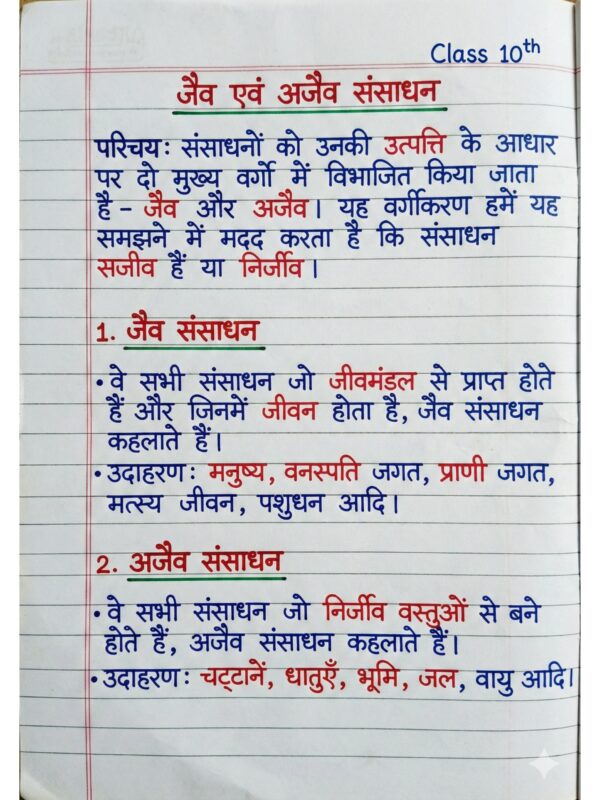 Class 10th
जैव एवं अजैव संसाधन
परिचय: संसाधनों को उनकी उत्पत्ति के आधार
पर दो मुख्य वर्गो में विभाजित किया जाता
है - जैव और अजैव। यह वर्गीकरण हमें यह
समझने में मदद करता है कि संसाधन
सजीव हैं या निर्जीव।
1. जैव संसाधन
• वे सभी संसाधन जो जीवमंडल से प्राप्त होते
हैं और जिनमें जीवन होता है, जैव संसाधन
कहलाते हैं।
• उदाहरण: मनुष्य, वनस्पति जगत, प्राणी जगत,
मत्स्य जीवन, पशुधन आदि।
2. अजैव संसाधन
• वे सभी संसाधन जो निर्जीव वस्तुओं से बने
होते हैं, अजैव संसाधन कहलाते हैं।
• उदाहरण: चट्टानें, धातुएँ, भूमि, जल, वायु आदि।